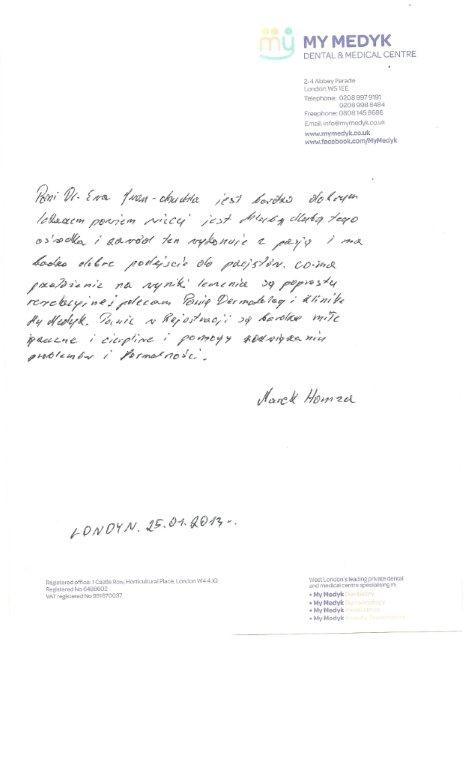 my MY MEDYK
DENTAL & MEDICAL CENTRE
2-4 Abbey Parade
London W5 1EE
Telephone: 0208 997 9191
0208 998 8484
Freephone: 0808 145 8686
Email: info@mymedyk.co.uk
www.mymedyk.co.uk
www.facebook.com/MyMedyk
Pani Dr. Ewa jest bardzo dobrym
lekarzem powiem więcej jest chlubą tego
ośrodka i zawód ten wykonuje z pasją i ma
bardzo dobre podejście do pacjętów. co ma
przełożenie na wyniki leczenia są poprostu
rewelacyjne i polecam Panią Dermatolog i klinikę
My Medyk. Panie w Rejestracji są bardzo miłe
i cierpliwe i pomogą rozwiązaniu
problemów i formalności.
Marek Homza
LONDYN. 25.01.2013..
Registered office: 1 Castle Row, Horticultural Place, London W4 4JQ
Registered No 6498602
VAT registered No 991870037
West London's leading private dental
and medical centre specialising in:
• My Medyk Dentistry
• My Medyk Dermatology
• My Medyk
• My Medyk